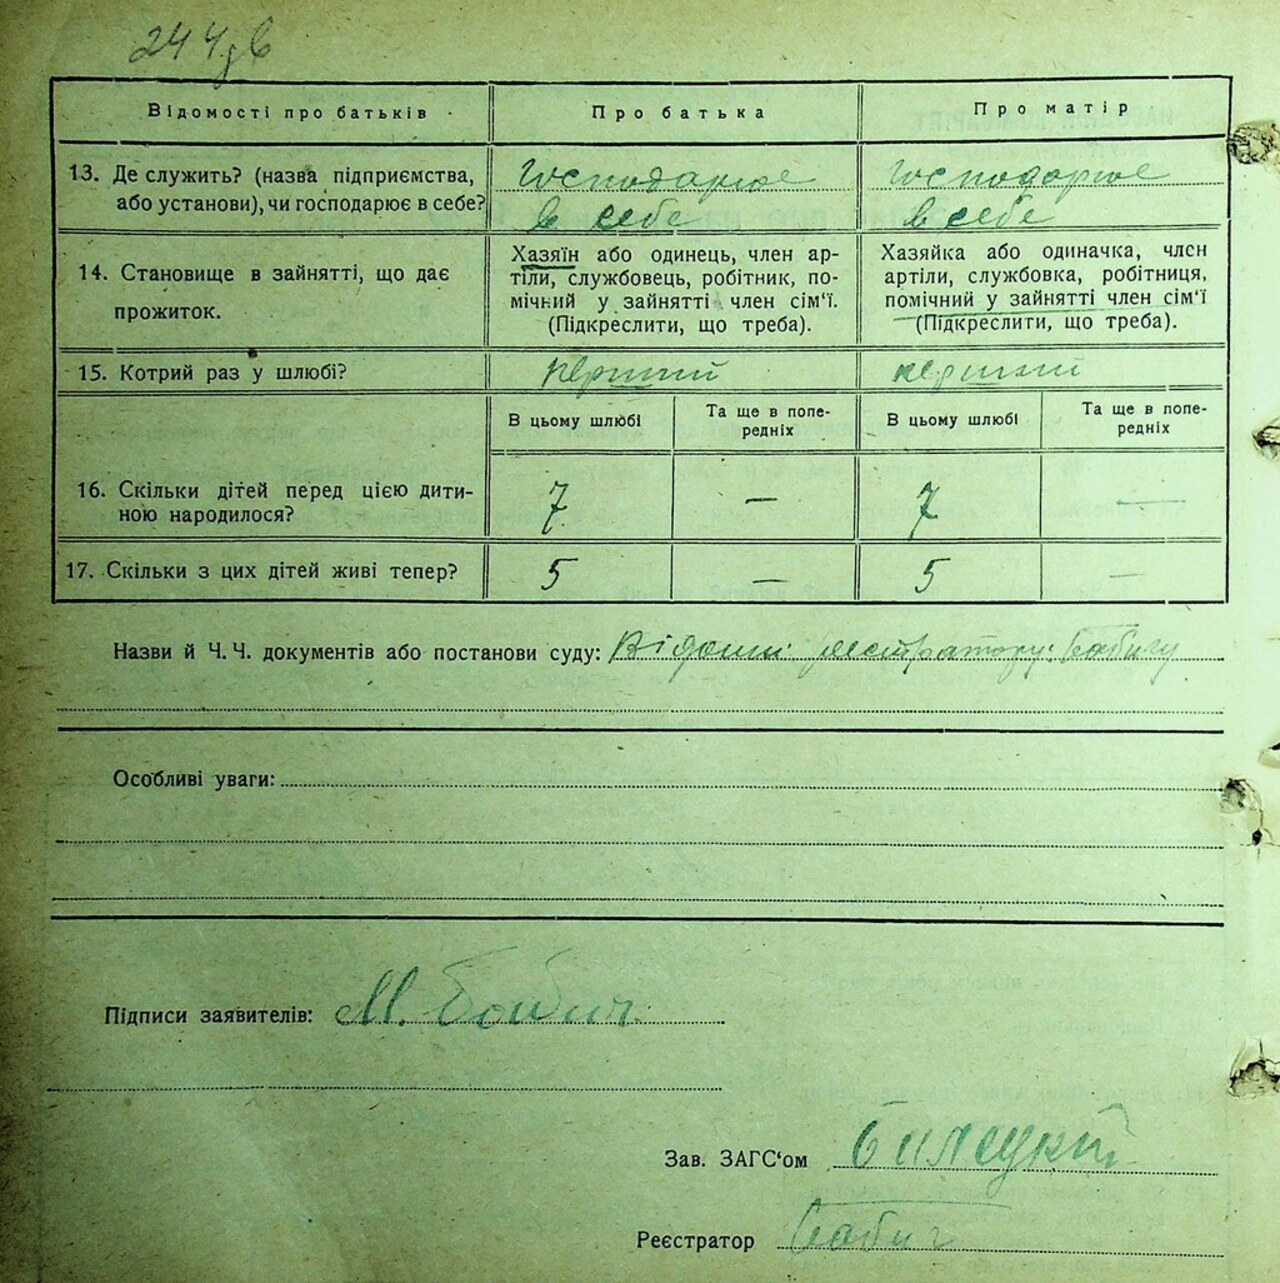 244зв
Відомості про батьків
Про батька
Про матір
13. Де служить? (назва підприємства,
або установи), чи господарює в себе?
Господарює
в себе
Господарює
в себе
14. Становище в зайнятті, що дає
прожиток.
Хазяїн або одинець, член ар-
тіли, службовець, робітник, по-
мічний у зайнятті член сім'ї.
(Підкреслити, що треба).
Хазяйка або одиначка, член
артіли, службовка, робітниця,
помічний у зайнятті член сім'ї
(Підкреслити, що треба).
15. Котрий раз у шлюбі?
перший
перший
В цьому шлюбі
Та ще в попе-
редніх
В цьому шлюбі
Та ще в попе-
редніх
16. Скільки дітей перед цією дити-
ною народилося?
7
—
7
—
17. Скільки з цих дітей живі тепер?
5
—
5
—
Назви й Ч. Ч. документів або постанови суду: Відомий реєстратору: Бабичу
Особливі уваги:
Підписи заявителів: М. Бабич.
Зав. ЗАГС'ом Билецкий
Реєстратор Бабич